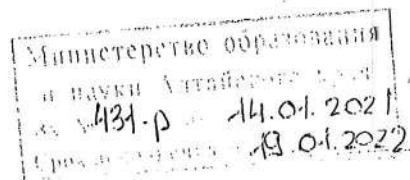 Министерство образования
и науки Алтайского края
№ 431-р от 14.01.2021
Срок 19.01.2022